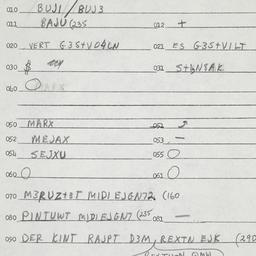 010 BUJ1 / BUJ3
011 BAJU (235 012 +
020 VERT G35+VO4LN 021 ES G35+VILT
030 $ 031
060
050 MARX 052
052 MEJAX 053 —
054 SEJXU 055 O
060 O 061 O
070 M3RUZ+BT MIDI EJGN72 (160
080 PINTUWT MIDIEJGN7 (235 081 —
090 DER KINT RAJPT D3M, REXTN EJK (290